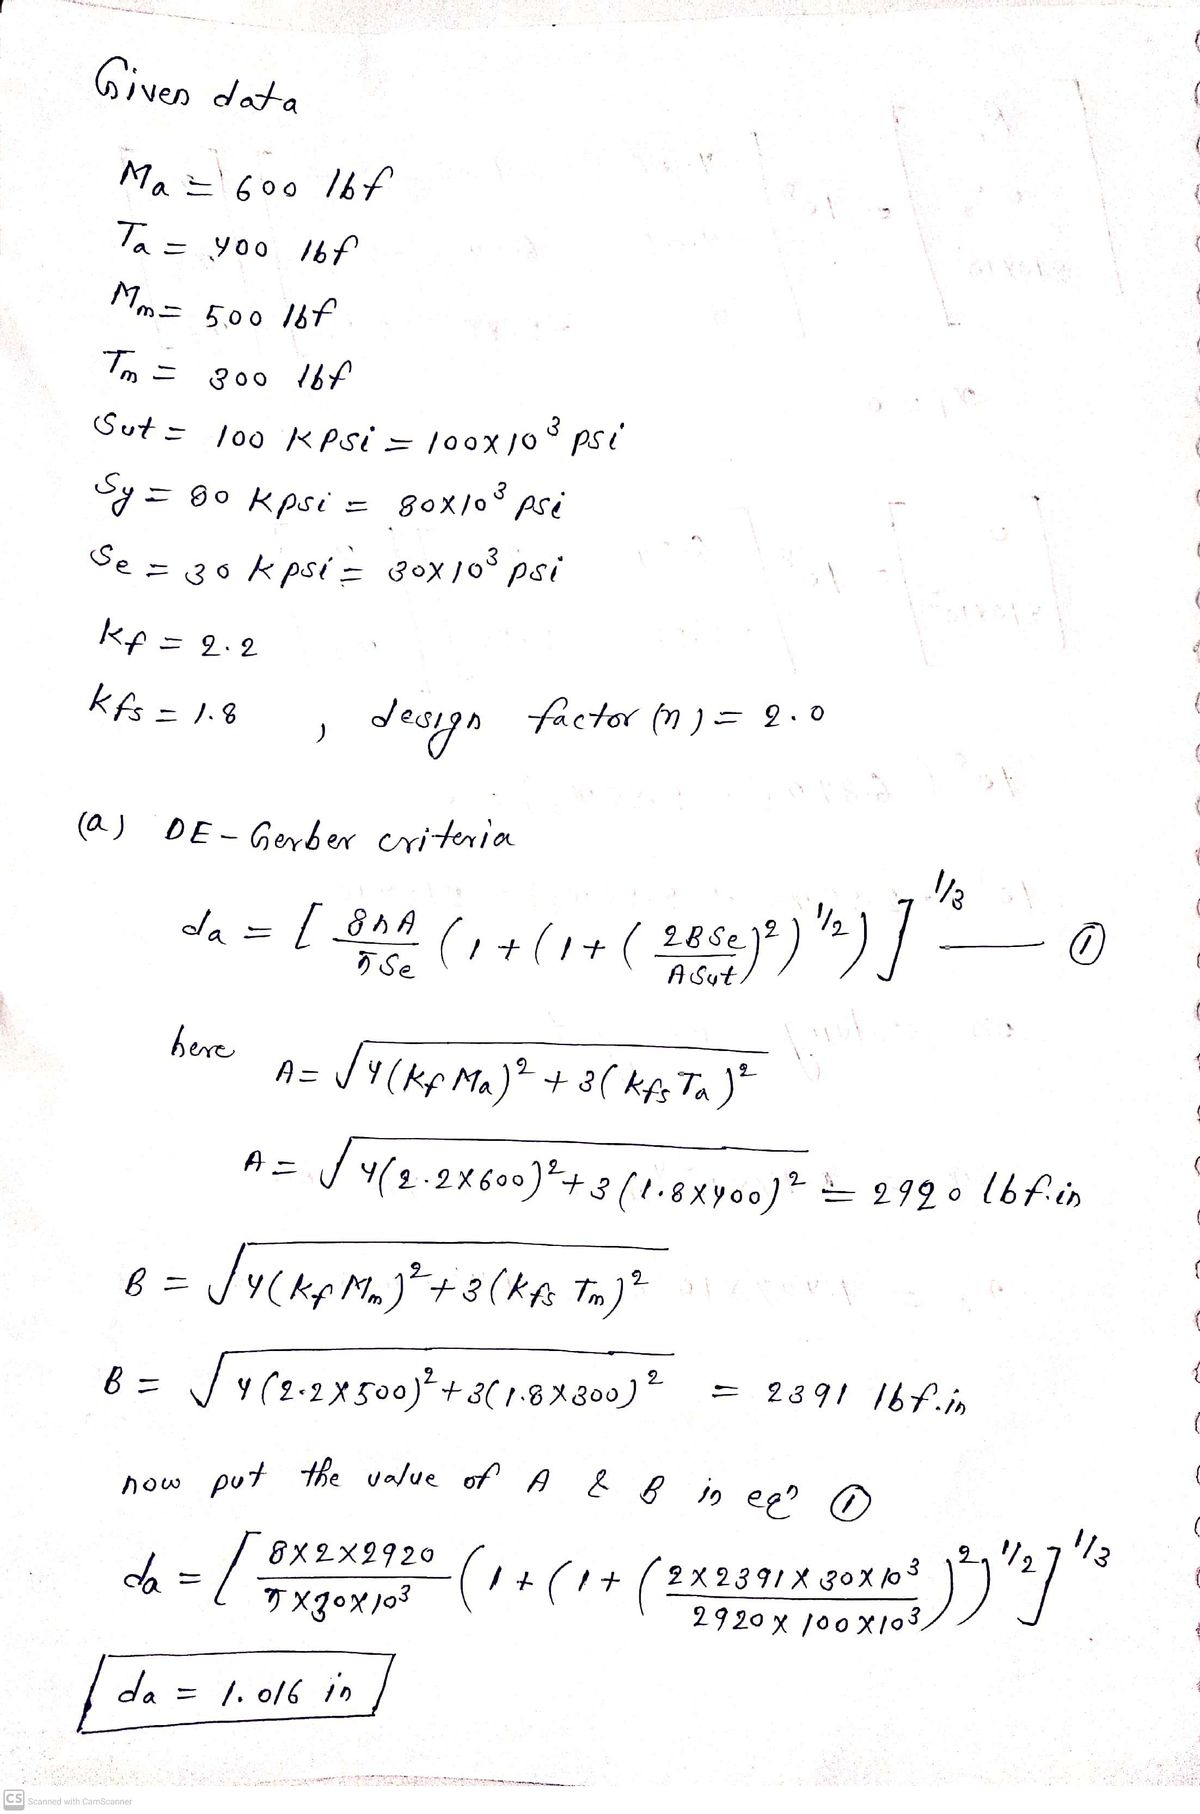 Given data
Ma = 600 lbf
Ta = 400 lbf
Mm = 500 lbf
Tm = 300 lbf
Sut = 100 kpsi = 100x10³ psi
Sy = 80 kpsi = 80x10³ psi
Se = 30 kpsi = 30x10³ psi
kf = 2.2
kfs = 1.8 , design factor (n) = 2.0
(a) DE - Gerber criteria
da = [ 8nA/πSe (1 + (1 + (2BSe/ASut)²)^1/2) ]^1/3 — ①
here A = √4(kf Ma)² + 3(kfs Ta)²
A = √4(2.2x600)² + 3(1.8x400)² = 2920 lbf.in
B = √4(kf Mm)² + 3(kfs Tm)²
B = √4(2.2x500)² + 3(1.8x300)² = 2391 lbf.in
now put the value of A & B in eqn ①
da = [ 8x2x2920/πx30x10³ (1 + (1 + (2x2391x30x10³/2920x100x10³)²)^1/2 ]^1/3
da = 1.016 in
CS Scanned with CamScanner